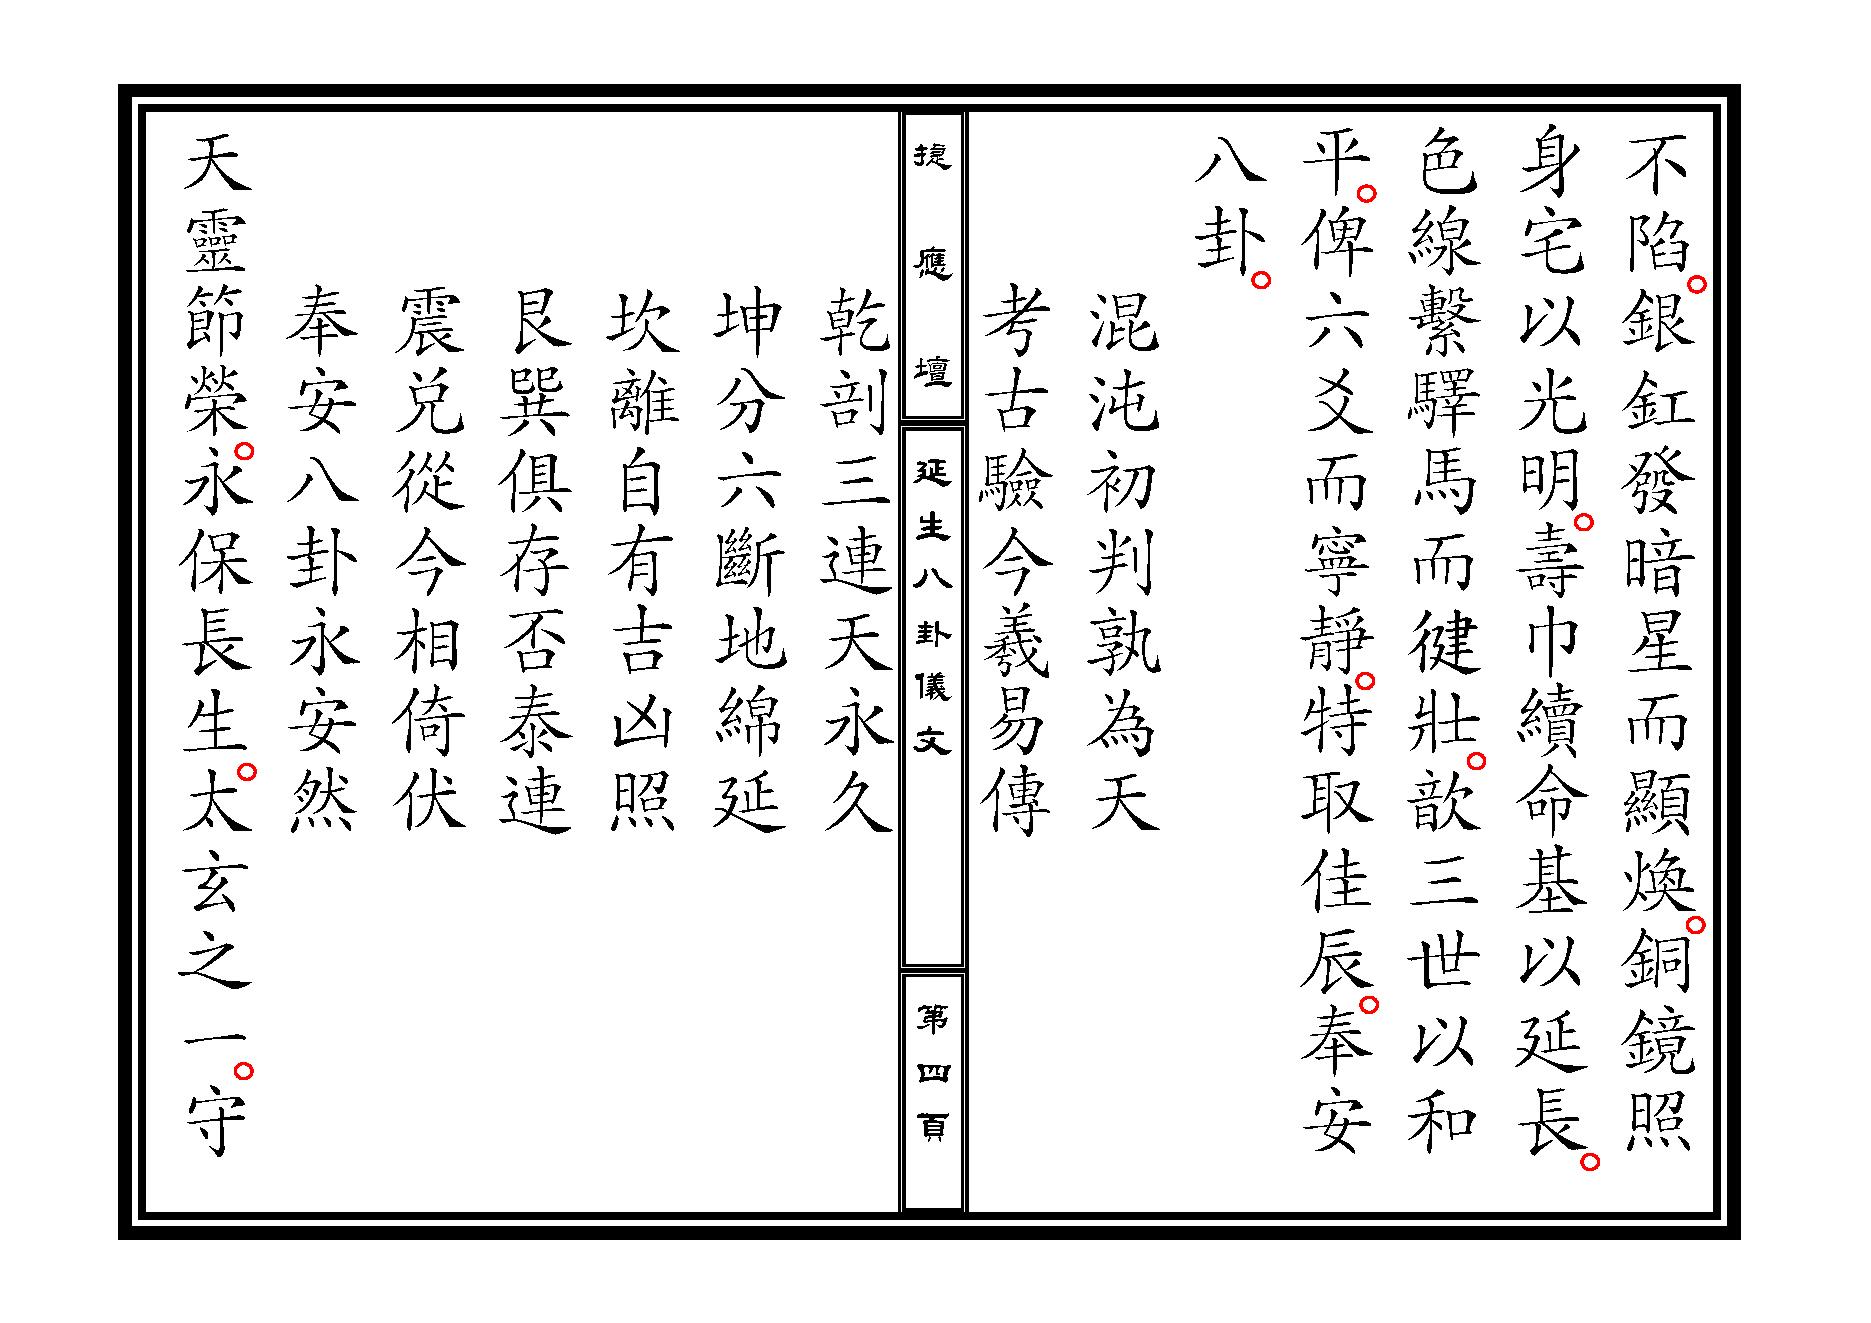 不陷。銀釭發暗星而顯煥。銅鏡照
身宅以光明。壽巾續命基以延長。
色線繫驛馬而健壯。歆三世以和
平。俾六爻而寧靜。特取佳辰。奉安
八卦。
混沌初判孰為天
考古驗今羲易傳
捷應壇
延生八卦儀文
第四頁
乾剖三連天永久
坤分六斷地綿延
坎離自有吉凶照
艮巽俱存否泰連
震兌從今相倚伏
奉安八卦永安然
天靈節榮。永保長生。太玄之一。守